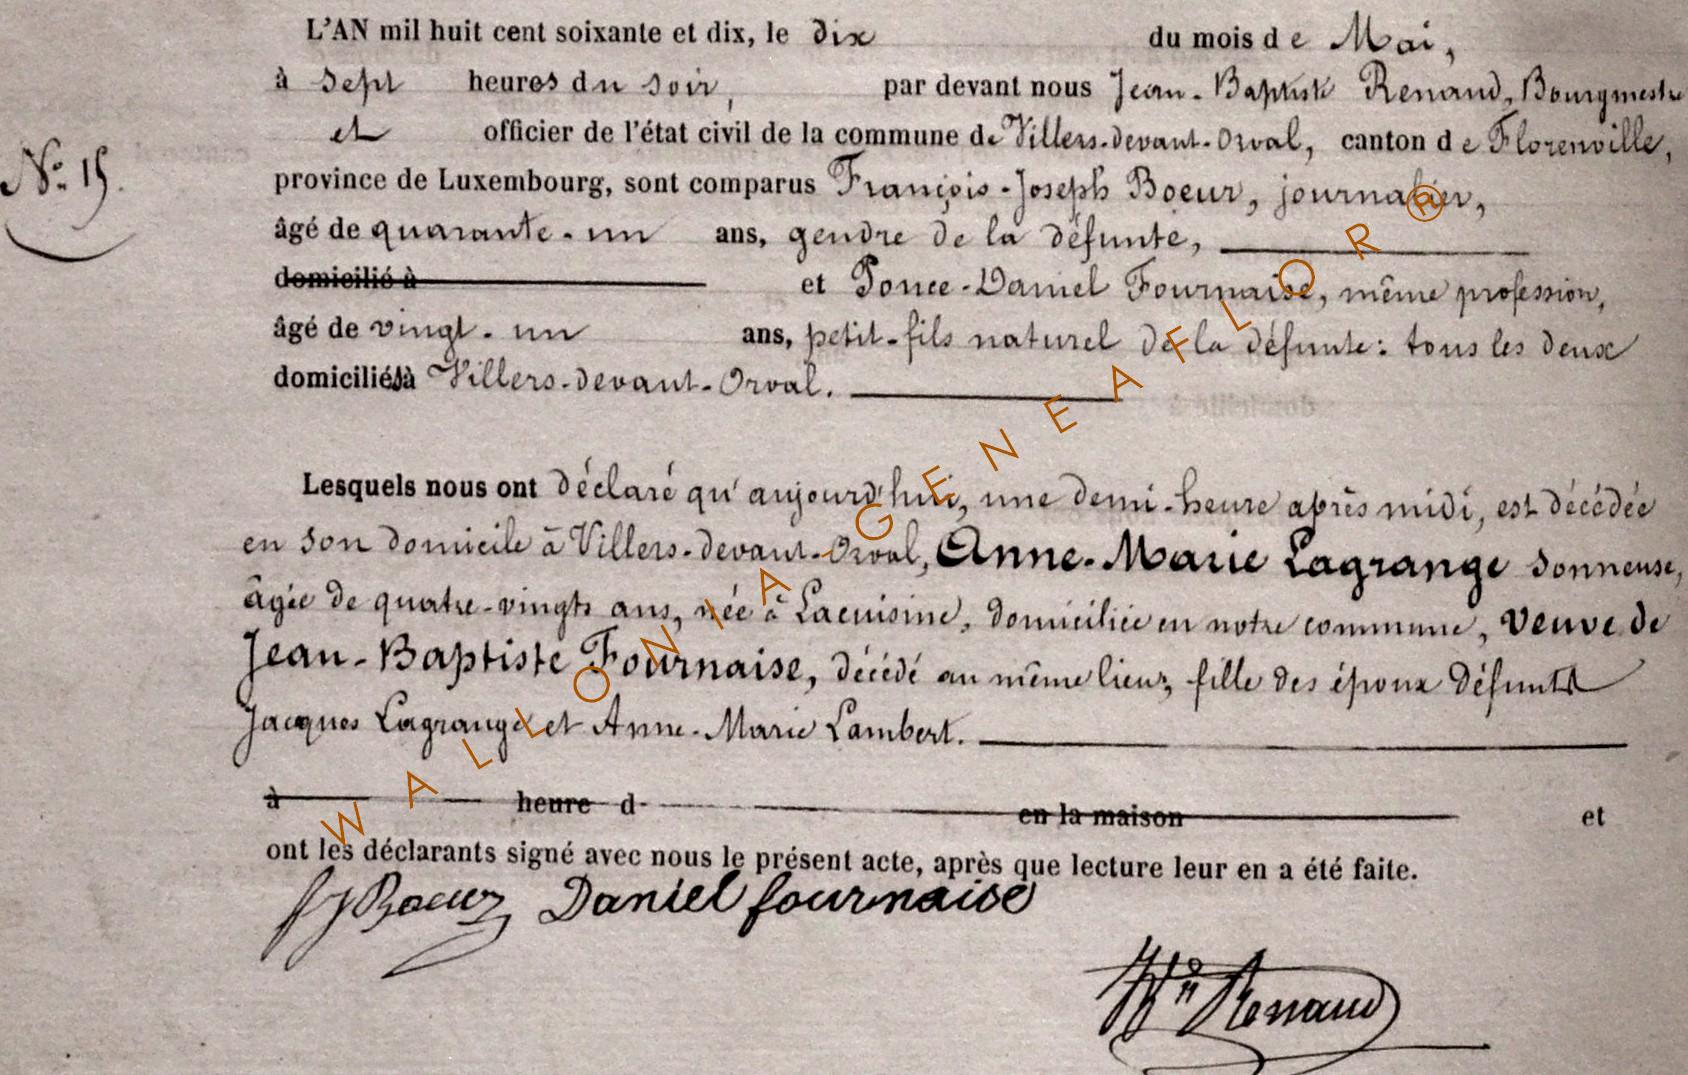 L'AN mil huit cent soixante et dix, le dix du mois de Mai,
à sept heures du soir, par devant nous Jean-Baptiste Renaud, Bourgmestre
et officier de l'état civil de la commune de Villers-devant-Orval, canton de Florenville,
N° 15.
province de Luxembourg, sont comparus François-Joseph Boeur, journalier,
âgé de quarante-un ans, gendre de la défunte,
domicilié à et Ponce-Daniel Fournaise, même profession,
âgé de vingt-un ans, petit-fils naturel de la défunte: tous les deux
domiciliés à Villers-devant-Orval.
Lesquels nous ont déclaré qu'aujourd'hui, une demi-heure après midi, est décédée
en son domicile à Villers-devant-Orval, Anne-Marie Lagrange sonneuse,
âgée de quatre-vingts ans, née à Lacuisine, domiciliée en notre commune, veuve de
Jean-Baptiste Fournaise, décédé au même lieu; fille des époux défunts
Jacques Lagrange et Anne-Marie Lambert.
à heure d en la maison et
ont les déclarants signé avec nous le présent acte, après que lecture leur en a été faite.
fj Boeur Daniel fournaise
Renaud
WALLONIA-GENEAFLOR®